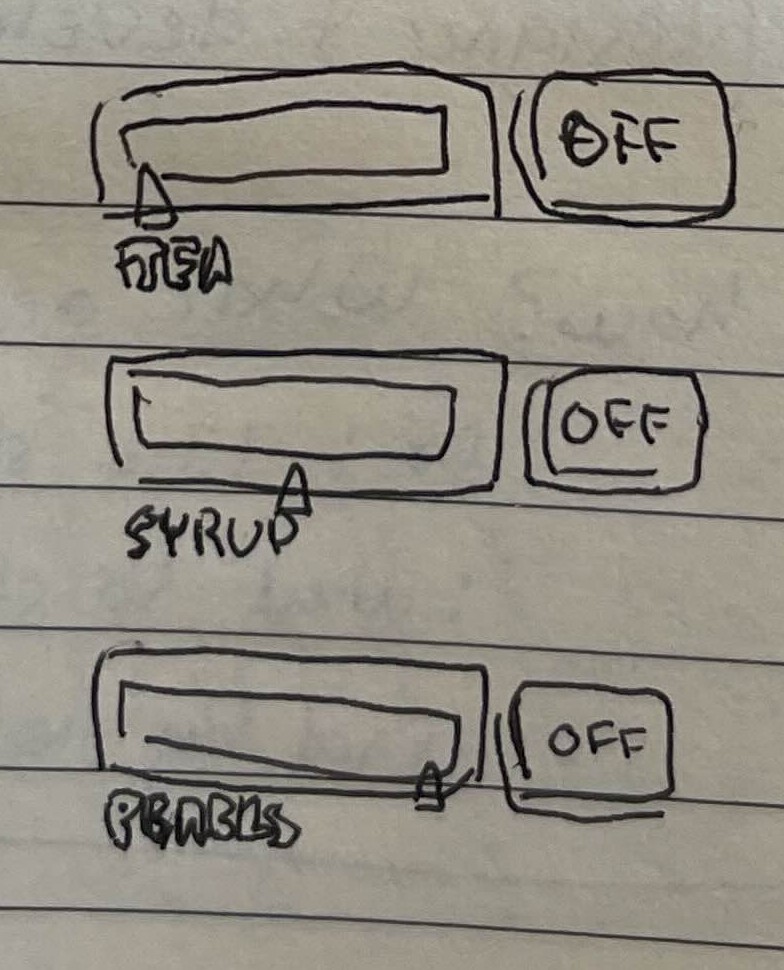 OFF
TEA
OFF
SYRUP
OFF
PEARLS